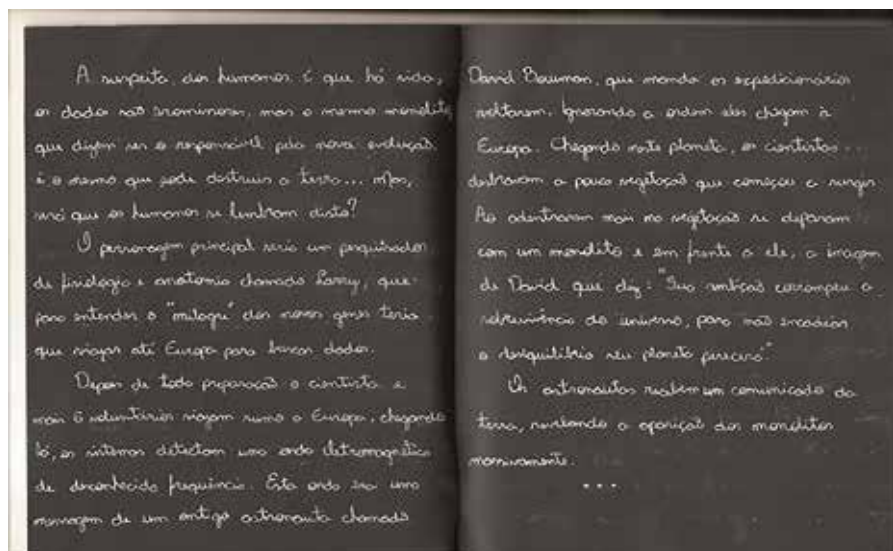 A suspeita dos humanos é que há vida,
os dados são promissores, mas o mesmo monolito
que dizem ser o responsável pela nova evolução
é o mesmo que pode destruir a terra... Mas,
será que os humanos se lembram disto?
O personagem principal seria um pesquisador
de fisiologia e anatomia chamado Larry, que
para entender o "milagre" dos novos genes teria
que viajar até Europa para buscar dados.
Depois de toda preparação o cientista e
mais 6 voluntários viajam rumo a Europa, chegando
lá, os sistemas detectam uma onda eletromagnética
de desconhecida frequência. Esta onda era uma
mensagem de um antigo astronauta chamado
David Bowman, que manda os expedicionários
voltarem. Ignorando a ordem eles chegam à
Europa. Chegando neste planeta, os cientistas
desbravam a pouca vegetação que começou a surgir.
Ao adentrarem mais na vegetação se deparam
com um monolito e em frente a ele, a imagem
de David que diz: "Sua ambição corrompeu a
sobrevivência do universo, para não encadear
o desequilíbrio seu planeta perecerá."
Os astronautas recebem um comunicado da
terra, revelando a aparição dos monolitos
massivamente.
...